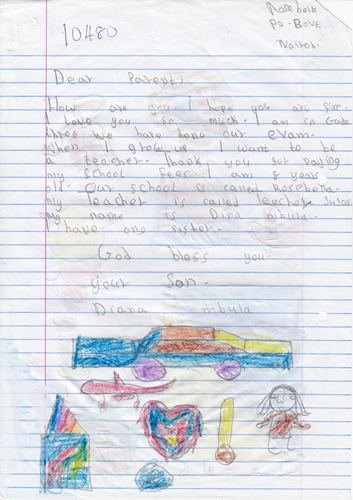 10480
Rosebella
Po. Box
Nairobi
Dear Parent:
How are you. I hope you are fine.
I love you so much. I am in Grade
three. We have done our exam.
When I grow up I want to be
a teacher. Thank you for paying
my school fees. I am 8 years
old. Our school is called Rosebella.
my teacher is called teacher
my name is Dina mbula.
I have one sister.
God bless you.
your Son.
Diana mbula